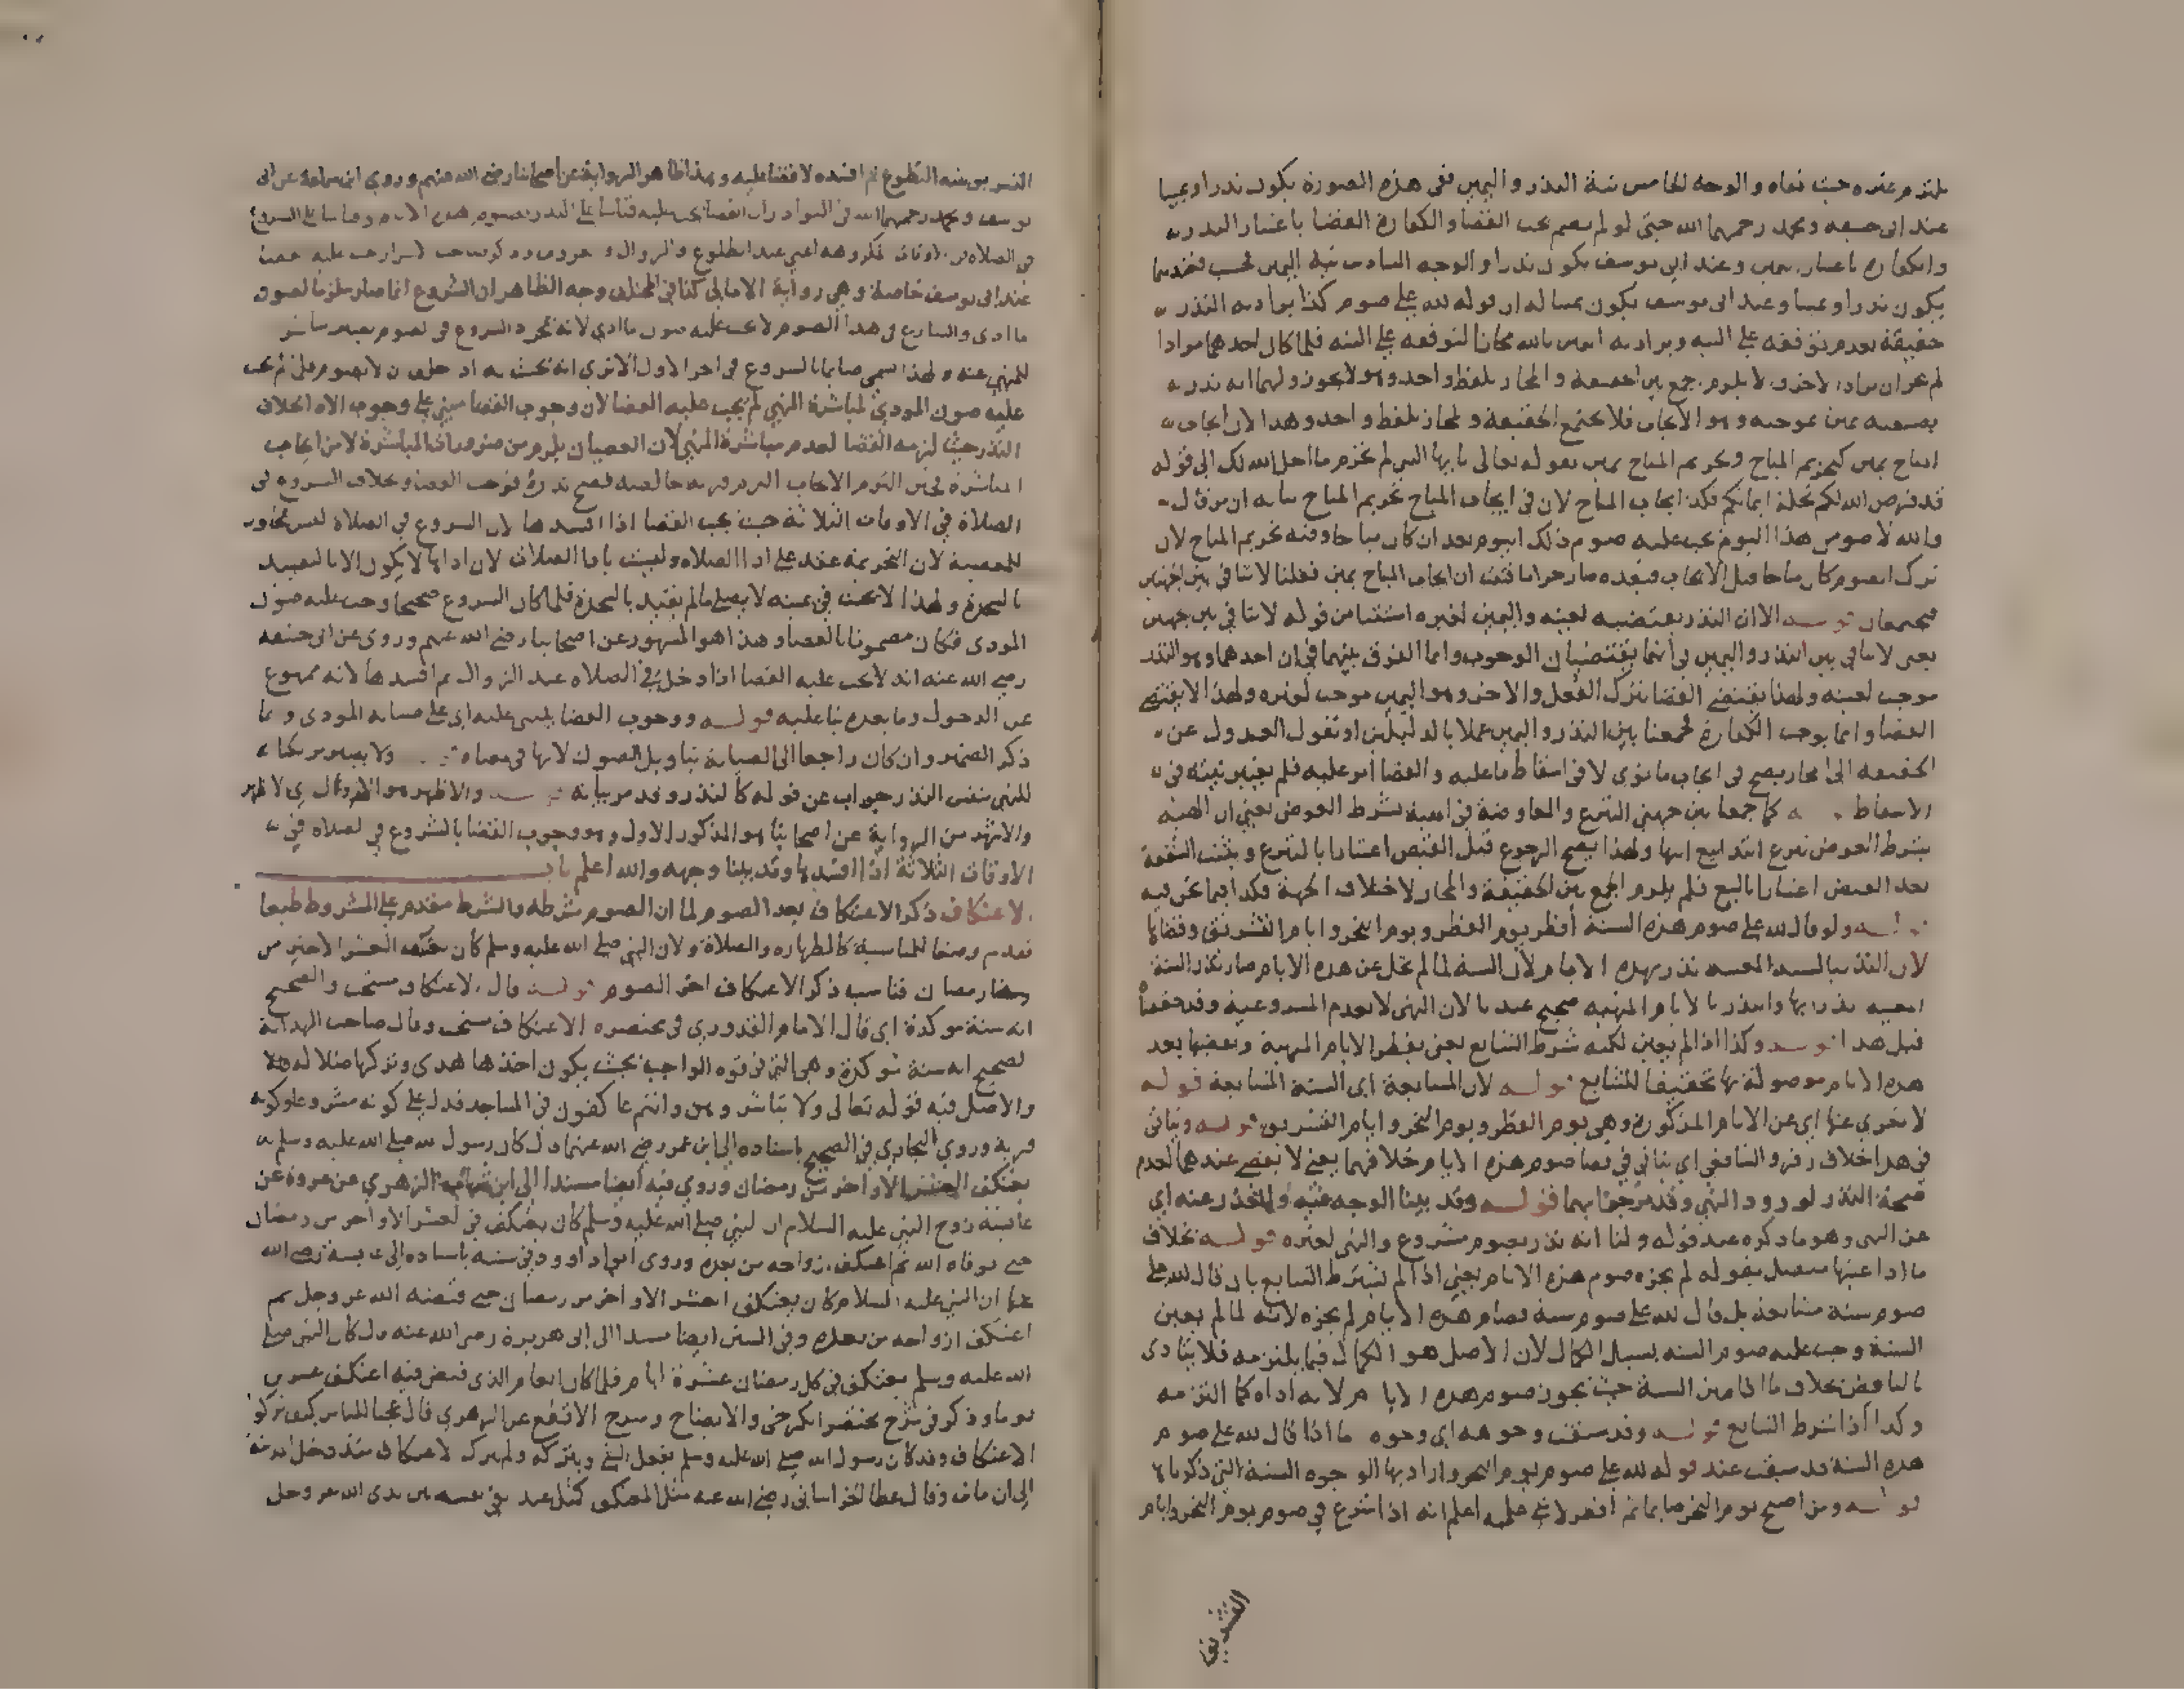 يلتزم غيره حيث نواه والوجه الخامس نية النذر واليمين ففي هذه الصورة يكون نذرا ويمينا
عند ابى حنيفة ومحمد رحمهما الله حتى لو لم يصم يجب القضا والكفارة القضا باعتبار النذر
والكفارة باعتبار اليمين وعند ابي يوسف يكون نذرا والوجه السادس نية اليمين فحسب فعندهما
يكون نذرا ويمينا وعند ابى يوسف يكون يمينا له ان قوله لله علي صوم كذا يراد به النذر
حقيقة لعدم توقفه على النية ويراد به اليمين مجازا لتوقفه على النية فلما كان احدهما مرادا
لم يجز ان يراد الاخر والا يلزم جمع بين الحقيقة والمجاز بلفظ واحد وهو لا يجوز ولهما انه نذر
بصيغته يمين بموجبه وهو الايجاب فلا يجتمع الحقيقة والمجاز بلفظ واحد وهذا لان ايجاب
المباح يمين كتحريم المباح وتحريم المباح يمين بقوله تعالى يا ايها النبي لم تحرم ما احل الله لك الى قوله
قد فرض الله لكم تحلة ايمانكم فكذا ايجاب المباح لان في ايجاب المباح تحريم المباح بيانه ان من قال
والله لا صومن هذا اليوم يجب عليه صوم ذلك اليوم بعد ان كان مباحا وفيه تحريم المباح لان
ترك الصوم كان مباحا قبل الايجاب فبعده صار حراما فثبت ان ايجاب المباح يمين فقلنا لا تنافي بين الجهتين
فيجتمعان قوله الا ان النذر يقتضيه لعينه واليمين لغيره استثنا من قوله لا تنافي بين جهتين
يعنى لا تنافي بين النذر واليمين في انهما يقتضيان الوجوب وانما الفرق بينهما في ان احدهما وهو النذر
موجب لعينه ولهذا يقتضي القضا بترك الفعل والاخر وهو اليمين موجب لغيره ولهذا لا يقتضي
القضا وانما يوجب الكفارة فجمعنا بين النذر واليمين عملا بالدليلين او نقول العدول عن
الحقيقة الى المجاز يصح في ايجاب ما نوى لا في اسقاط ما عليه والقضا امر عليه فلم يعتبر نيته في
الاسقاط كما جمعنا بين جهتي التبرع والمعاوضة في الهبة بشرط العوض يعني ان الهبة
بشرط العوض تبرع ابتدا بيع انتها ولهذا يصح الرجوع قبل القبض اعتبارا بالتبرع ويثبت الشفعة
بعد القبض اعتبارا بالبيع فلم يلزم الجمع بين الحقيقة والمجاز لاختلاف الجهة فكذا فيما نحن فيه
قوله ولو قال لله على صوم هذه السنة افطر يوم الفطر ويوم النحر وايام التشريق وقضاها
لان النذر بالسنة المعينة نذر بهذه الايام لان السنة لما لم تخل عن هذه الايام صار نذر السنة
المعينة نذرا بها والنذر بالايام المنهية صحيح عندنا لان النهى لا يعدم المشروعية وقد حققناه
قبل هذا قوله وكذا اذا لم يعين لكنه شرط التتابع يعني يفطر الايام المنهية ويقضيها بعد
هذه الايام موصولة بها تحقيقا للتتابع قوله لان المتتابعة اى السنة المتتابعة قوله
لا تعرى عنها اي عن الايام المذكورة وهي يوم الفطر ويوم النحر وايام التشريق قوله ويتاتى
في هذا خلاف زفر والشافعي اي يتاتي في قضا صوم هذه الايام خلافهما يعني لا يقضى عندهما لعدم
صحة النذر لورود النهي وقد مر بهما قوله وقد بينا الوجه فيه والعذر عنه اي
عن النهى وهو ما ذكره عند قوله ولنا انه نذر بصوم مشروع والنهى لغيره قوله بخلاف
ما اذا عينها متصل بقوله لم يجزه صوم هذه الايام يعني اذا لم يشترط التتابع بان قال لله علي
صوم سنة متتابعة بل قال لله على صوم سنة فصام هذه الايام لم يجزه لانه لما لم يعين
السنة وجب عليه صوم السنة بسبيل الكمال لان الاصل هو الكمال فيما يلتزمه فلا يتادى
بالناقص بخلاف ما اذا عين السنة حيث يجوز صوم هذه الايام لانه اداه كما التزمه
وكذا اذا شرط التتابع قوله وقد سبقت وجوهه اى وجوه ما اذا قال لله على صوم
هذه السنة قد سبقت عند قوله لله علي صوم يوم النحر واراد بها الوجوه الستة التي ذكرناها
قوله ومن اصبح يوم النحر صايما ثم افطر لا شي عليه اعلم انه اذا شرع في صوم يوم النحر وايام
التشريق
التشريق بنية التطوع ثم افسده لا قضا عليه وهذا ظاهر الرواية عن اصحابنا رضي الله عنهم وروي ابن سماعة عن ابى
يوسف ومحمد رحمهما الله في النوادر ان القضا يجب عليه قياسا على النذر بصوم هذه الايام وقياسا على الشروع
في الصلاة في الاوقات المكروهة اعني عند الطلوع والزوال والغروب
عند ابى يوسف خاصة وهي رواية الامالي كذا في المختلف وجه الظاهر ان الشروع انما صار ملزما لصون
ما ادى والشارع في هذا الصوم لا يجب عليه صون ما ادي لانه بمجرد الشروع في الصوم يصير مباشرا
للمنهي عنه ولهذا يسمى صايما بالشروع في الجزء الاول الا ترى انه يحنث به اذا حلف ان لا يصوم فلم يجب
عليه صون المودى لمباشرة النهي لم يجب عليه القضا لان وجوب القضا مبني على وجوب الاداء بخلاف
النذر حيث لزمه القضا لعدم مباشرة المنهي لان العصيان يلزم من ضرورات المباشرة لا من ايجاب
المباشرة
الصلاة في الاوقات الثلاثة حيث يجب القضا اذا افسدها لان الشروع في الصلاة ليس بمجاور
للمعصية لان التحريمة عقد على ادا الصلاة وليست بادا الصلاة لان اداها لا يكون الا بالتقييد
بالسجدة ولهذا لا يحنث في يمينه لا يصلي ما لم يقيد بالسجدة فلما كان الشروع صحيحا وجب عليه صون
المودى فكان مضمونا بالقضا وهذا هو المشهور عن اصحابنا رضي الله عنهم وروى عن ابى حنيفة
رضي الله عنه انه لا يجب عليه القضا اذا دخل في الصلاة عند الزوال ثم افسدها لانه ممنوع
عن الدخول وما بعده بنا عليه قوله ووجوب القضا يبتنى عليه اى على صيانة المودى وانما
ذكر الضمير وان كان راجعا الى الصيانة بتاويل الصون لانها في معناه قوله ولا يصير مرتكبا
للنهي بنفس النذر جواب عن قوله كالنذر وقد مر بيانه قوله والاظهر هو الاول اي الاظهر
والاشهر من الرواية عن اصحابنا هو المذكور الاول وهو وجوب القضا بالشروع في الصلاة في
الاوقات الثلاثة اذا افسدها وقد بينا وجهه والله اعلم باب
الاعتكاف ذكر الاعتكاف بعد الصوم لما ان الصوم شرطه والشرط مقدم على المشروط طبعا
فقدم وضعا للمناسبة كالطهاره والصلاة ولان النبي صلى الله عليه وسلم كان يعتكف العشر الاخير من
رمضان فناسب ذكر الاعتكاف اخر الصوم قوله قال الاعتكاف مستحب والصحيح
انه سنة موكدة اي قال الامام القدوري في مختصره الاعتكاف مستحب وقال صاحب الهداية
الصحيح انه سنة موكدة وهي التي في قوة الواجب بحيث يكون اخذها هدى وتركها ضلالة
والاصل فيه قوله تعالى ولا تباشروهن وانتم عاكفون في المساجد فدل على كونه مشروعا وكونه
قربة وروي البخاري في الصحيح باسناده الى ابن عمر رضي الله عنهما قال كان رسول الله صلى الله عليه وسلم
يعتكف العشر الاواخر من رمضان وروي فيه ايضا مسندا الى ابن شهاب الزهري عن عروة عن
عايشة زوج النبي عليه السلام ان النبي صلى الله عليه وسلم كان يعتكف في العشر الاواخر من رمضان
حتى توفاه الله ثم اعتكف ازواجه من بعده وروى ابو داوود في سننه باسناده الى عايشة رضي الله
عنها ان النبي عليه السلام كان يعتكف العشر الاواخر من رمضان حتى قبضه الله عز وجل ثم
اعتكف ازواجه من بعده وفي السنن ايضا مسندا الى ابى هريرة رضى الله عنه قال كان النبي صلى
الله عليه وسلم يعتكف في كل رمضان عشرة ايام فلما كان العام الذى قبض فيه اعتكف عشرين
يوما وذكر في شرح مختصر الكرخي والايضاح وشرح الاقطع عن الزهري قال عجبا للناس كيف تركوا
الاعتكاف وقد كان رسول الله صلى الله عليه وسلم يفعل الشي ويتركه ولم يترك الاعتكاف منذ دخل المدينة
الى ان مات وقال عطا الخراسانى رضي الله عنه مثل المعتكف كمثل عبد القى نفسه بين يدى الله عز وجل